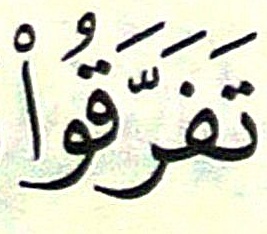 تَفَرَّقُواْ